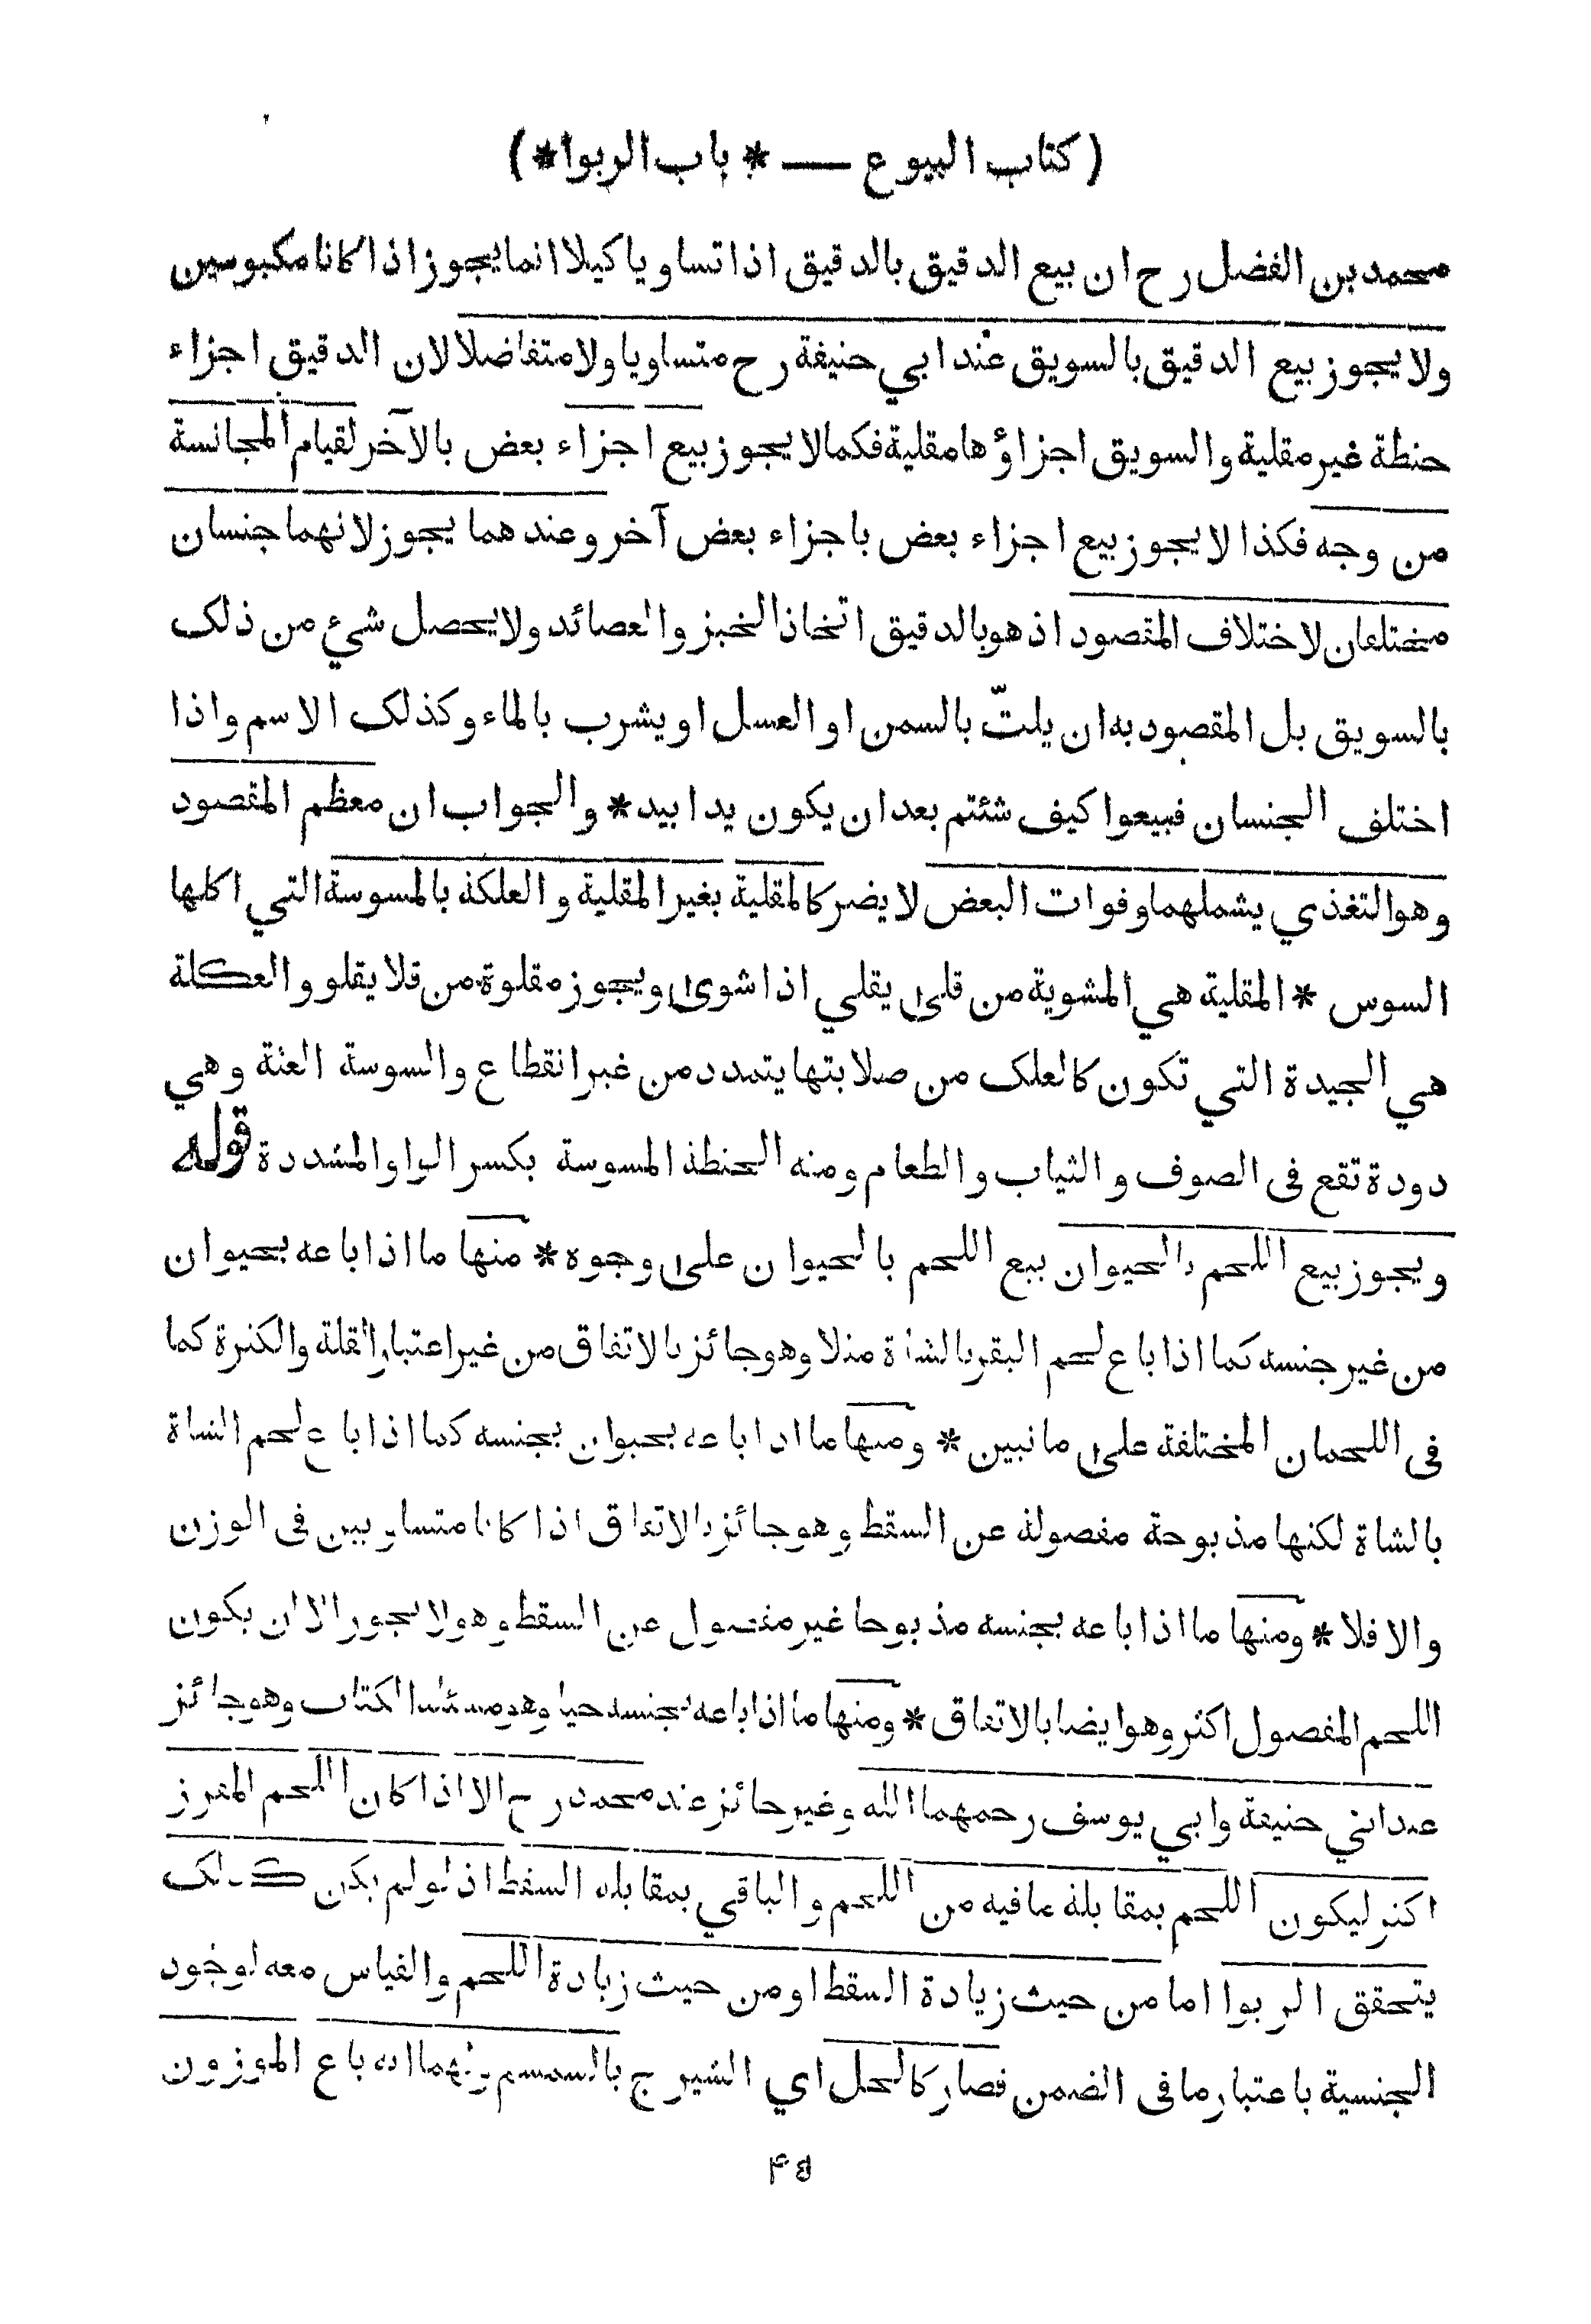 ( كتاب البيوع — * باب الربوا * )
محمد بن الفضل رح ان بيع الدقيق بالدقيق اذا تساويا كيلا انما يجوز اذا كانا مكبوسين
ولا يجوز بيع الدقيق بالسويق عند ابي حنيفة رح متساويا ولا متفاضلا لان الدقيق اجزاء
حنطة غير مقلية والسويق اجزاؤها مقلية فكما لا يجوز بيع اجزاء بعض بالآخر لقيام المجانسة
من وجه فكذا لا يجوز بيع اجزاء بعض باجزاء بعض آخر وعندهما يجوز لانهما جنسان
مختلفان لاختلاف المقصود اذ هو بالدقيق اتخاذ الخبز والعصائد ولا يحصل شيء من ذلك
بالسويق بل المقصود به ان يلتّ بالسمن او العسل او يشرب بالماء وكذلك الاسم واذا
اختلف الجنسان فبيعوا كيف شئتم بعد ان يكون يدا بيد * والجواب ان معظم المقصود
وهو التغذي يشملهما وفوات البعض لا يضر كالمقلية بغير المقلية والعلكة بالمسوسة التي اكلها
السوس * المقلية هي المشوية من قلى يقلي اذا شوى ويجوز مقلوة من قلا يقلو والعكلة
هي الجيدة التي تكون كالعلك من صلابتها يتمدد من غير انقطاع والسوسة العثة وهي
دودة تقع فى الصوف والثياب والطعام ومنه الحنطة المسوسة بكسر الواو المشددة قوله
ويجوز بيع اللحم بالحيوان بيع اللحم بالحيوان على وجوه * منها ما اذا باعه بحيوان
من غير جنسه كما اذا باع لحم البقر بالشاة مثلا وهو جائز بالاتفاق من غير اعتبار القلة والكثرة كما
فى اللحمان المختلفة على ما نبين * ومنها ما اذا باعه بحيوان بجنسه كما اذا باع لحم الشاة
بالشاة لكنها مذبوحة مفصولة عن السقط وهو جائز بالاتفاق اذا كانا متساويين فى الوزن
والا فلا * ومنها ما اذا باعه بجنسه مذبوحا غير مفصول عن السقط وهو لا يجوز الا ان يكون
اللحم المفصول اكثر وهو ايضا بالاتفاق * ومنها ما اذا باعه بجنسه حيا وهو مسئلة الكتاب وهو جائز
عند ابي حنيفة وابي يوسف رحمهما الله وغير جائز عند محمد رح الا اذا كان اللحم المفرز
اكثر ليكون اللحم بمقابلة ما فيه من اللحم والباقي بمقابلة السقط اذ لو لم يكن كذلك
يتحقق الربوا اما من حيث زيادة السقط او من حيث زيادة اللحم والقياس معه لوجود
الجنسية باعتبار ما فى الضمن فصار كالحل اي الشيرج بالسمسم ولهما انه باع الموزون